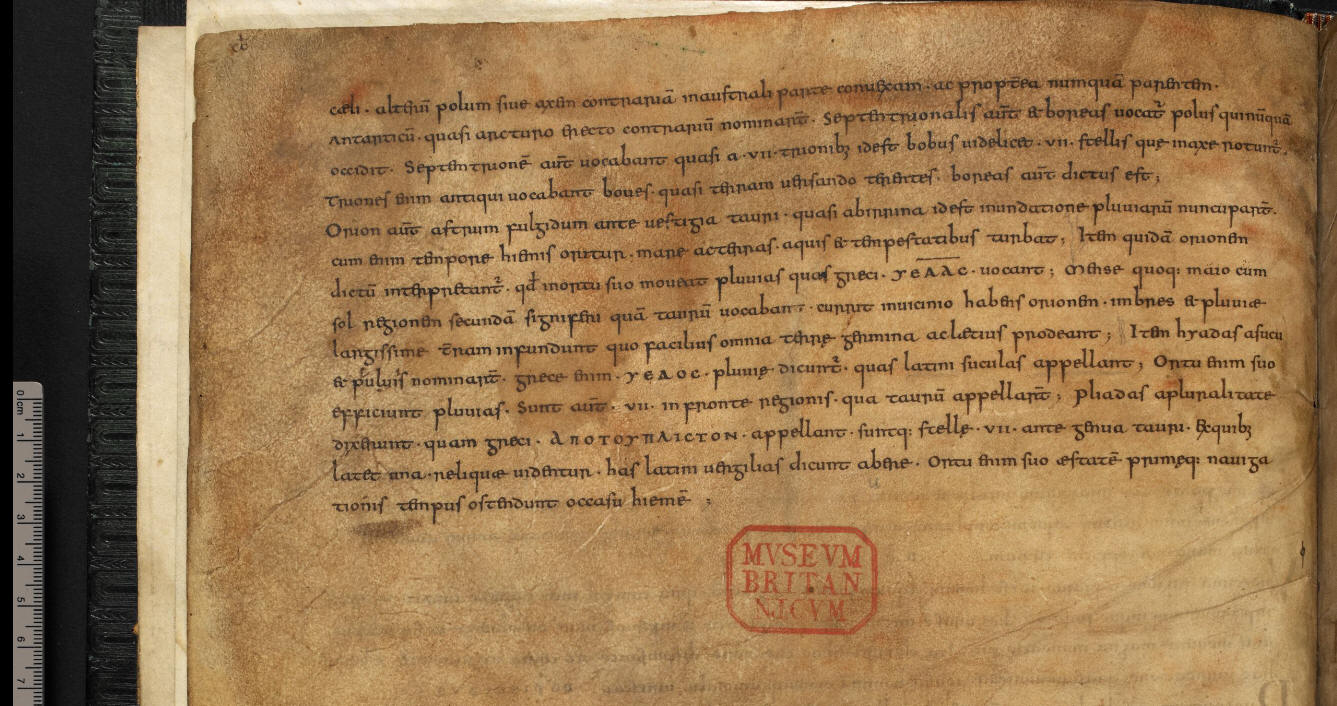 cæli · alteriū polum siue axen contrariā inaustrali parte conuexam · ac propterea numquā parentem ·
Antarticū · quasi arcturo erecto contrariū nominar̄t · Septentrionalis aūt & boreas uocat̄ polus qui nūquā
occidit · Septentrionē aūt uocabant quasi a · vii · trionibꝫ idest bobus uidelicet · vii · stellis quę maxe notunt̄ ·
Triones enim antiqui uocabant boues · quasi terram uersando terentes · boreas aūt dictus est ;
Orion aūt astrum fulgidum ante uestigia tauri · quasi ab irrina idest inundatione pluuiarū nuncupar̄t ·
cum enim tempore hiemis oritur · mare ac terras · aquis & tempestatibus turbat ; Item quidā orionem
dictū interpretant̄ · qđ inortu suo moueat pluuias quas greci · yeΛΛc · uocant ; Mense quoq: maio cūm
sol regionem secundā signiferi quā taurū uocabant · currit inuicinio habens orionem · imbres & pluuiæ
largissime t̄ram infundunt quo facilius omnia terrę germina ac lætius prodeant ; Item hyadas asucu
& pluuiis nominar̄t · grece enim · yeΛoc · pluuię dicunt̄ · quas latini suculas appellant ; Ortu enim suo
efficiunt pluuias · Sunt aūt · vii · in fronte regionis · qua taurū appellar̄t ; Pliadas apluralitate
dixerunt · quam greci · ΑΠΟΤΟΥΠΛΙCΤΟΝ · appellant · suntq: stellę · vii · ante genua tauri · Exquibꝫ
latet una · reliquæ uidentur · has latini uergilias dicunt abere · Ortu enim suo æstatē primęq: nauiga
tionis tempus ostendunt occasu hiemē ;
MVSEVM
BRITAN
NICVM